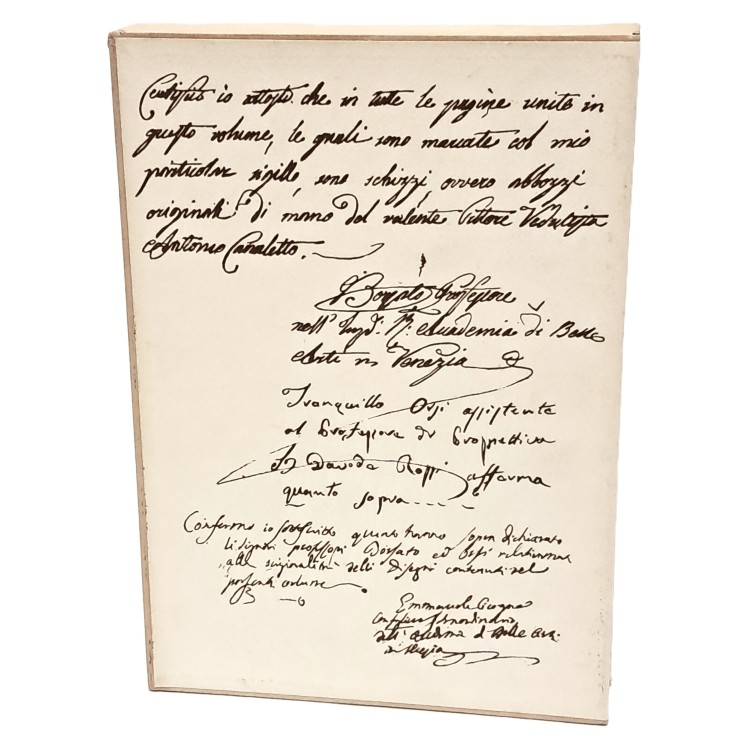 io attesto che in tutte le pagine unite in
questo volume, le quali sono marcate col mio
particolar sigillo, sono schizzi, ovvero abbozzi
originali di mano del valente Pittore Vedutista
Antonio Canaletto.
Borsato Professore
nell' Accademia di Belle
Arti in Venezia
Tranquillo Orsi assistente
al Professore di Prospettiva
Davide Rossi afferma
quanto sopra
Confermo io sottoscritto quanto hanno sopra dichiarato
li signori professori Borsato ed Orsi relativamente
alla originalità delli Disegni contenuti nel
presente volume.
Emmanuele Cicogna
dell' di Belle Arti